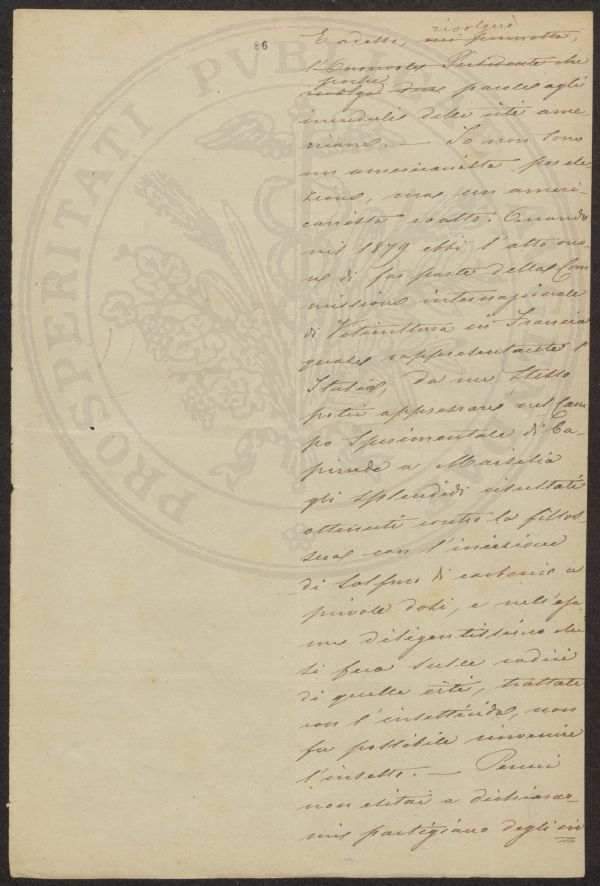 36
E adesso, rivolgerò
mi permetta,
l'Onorevole Presidente che
poche
rivolga due parole agli
increduli delle viti ame-
ricane. — Io non sono
un americanista per ele-
zione, ma un ameri-
canista esatto. Quando
nel 1879 ebbi l'alto ono-
re di far parte della Com
missione internazionale
di Viticultura in Francia
quale rappresentante l'
Italia, da me stesso
potei apprezzare nel Cam
po Sperimentale di Ca-
pinede a Marsiglia
gli splendidi risultati
ottenuti contro la fillos-
sera con l'iniezione
di Solfuro di carbonio a
piccole dosi, e nell'esa-
me diligentissimo che
si fece sulle radici
di quelle viti, trattate
con l'insetticida, non
fu possibile rinvenire
l'insetto. —
non esitai a dichiarar-
mi partigiano degli in
PROSPERITATI PVBLICAE